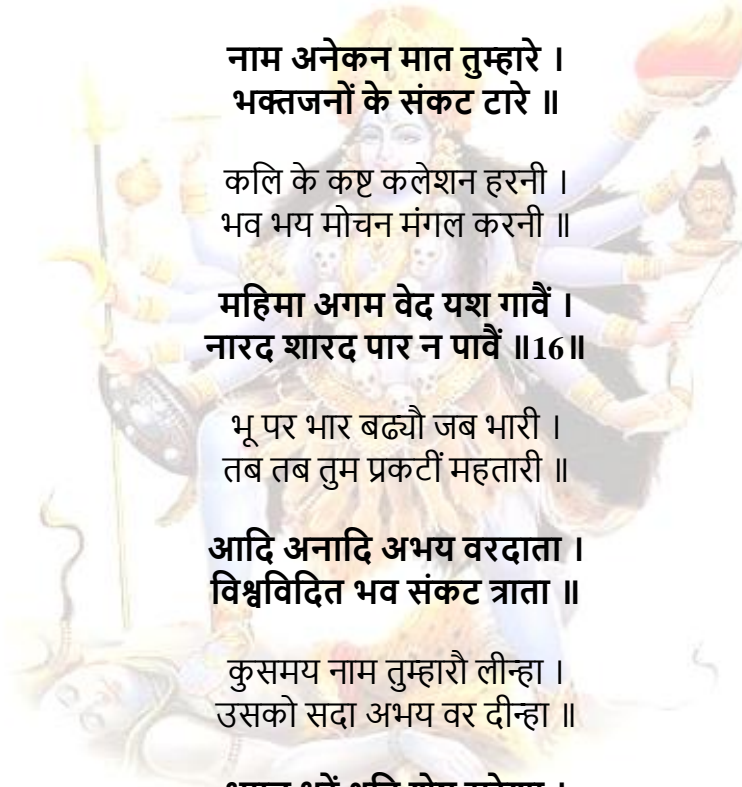 नाम अनेकन मात तुम्हारे ।
भक्तजनों के संकट टारे ॥
कलि के कष्ट कलेशन हरनी ।
भव भय मोचन मंगल करनी ॥
महिमा अगम वेद यश गावैं ।
नारद शारद पार न पावैं ॥16॥
भू पर भार बढ्यौ जब भारी ।
तब तब तुम प्रकटीं महतारी ॥
आदि अनादि अभय वरदाता ।
विश्वविदित भव संकट त्राता ॥
कुसमय नाम तुम्हारौ लीन्हा ।
उसको सदा अभय वर दीन्हा ॥